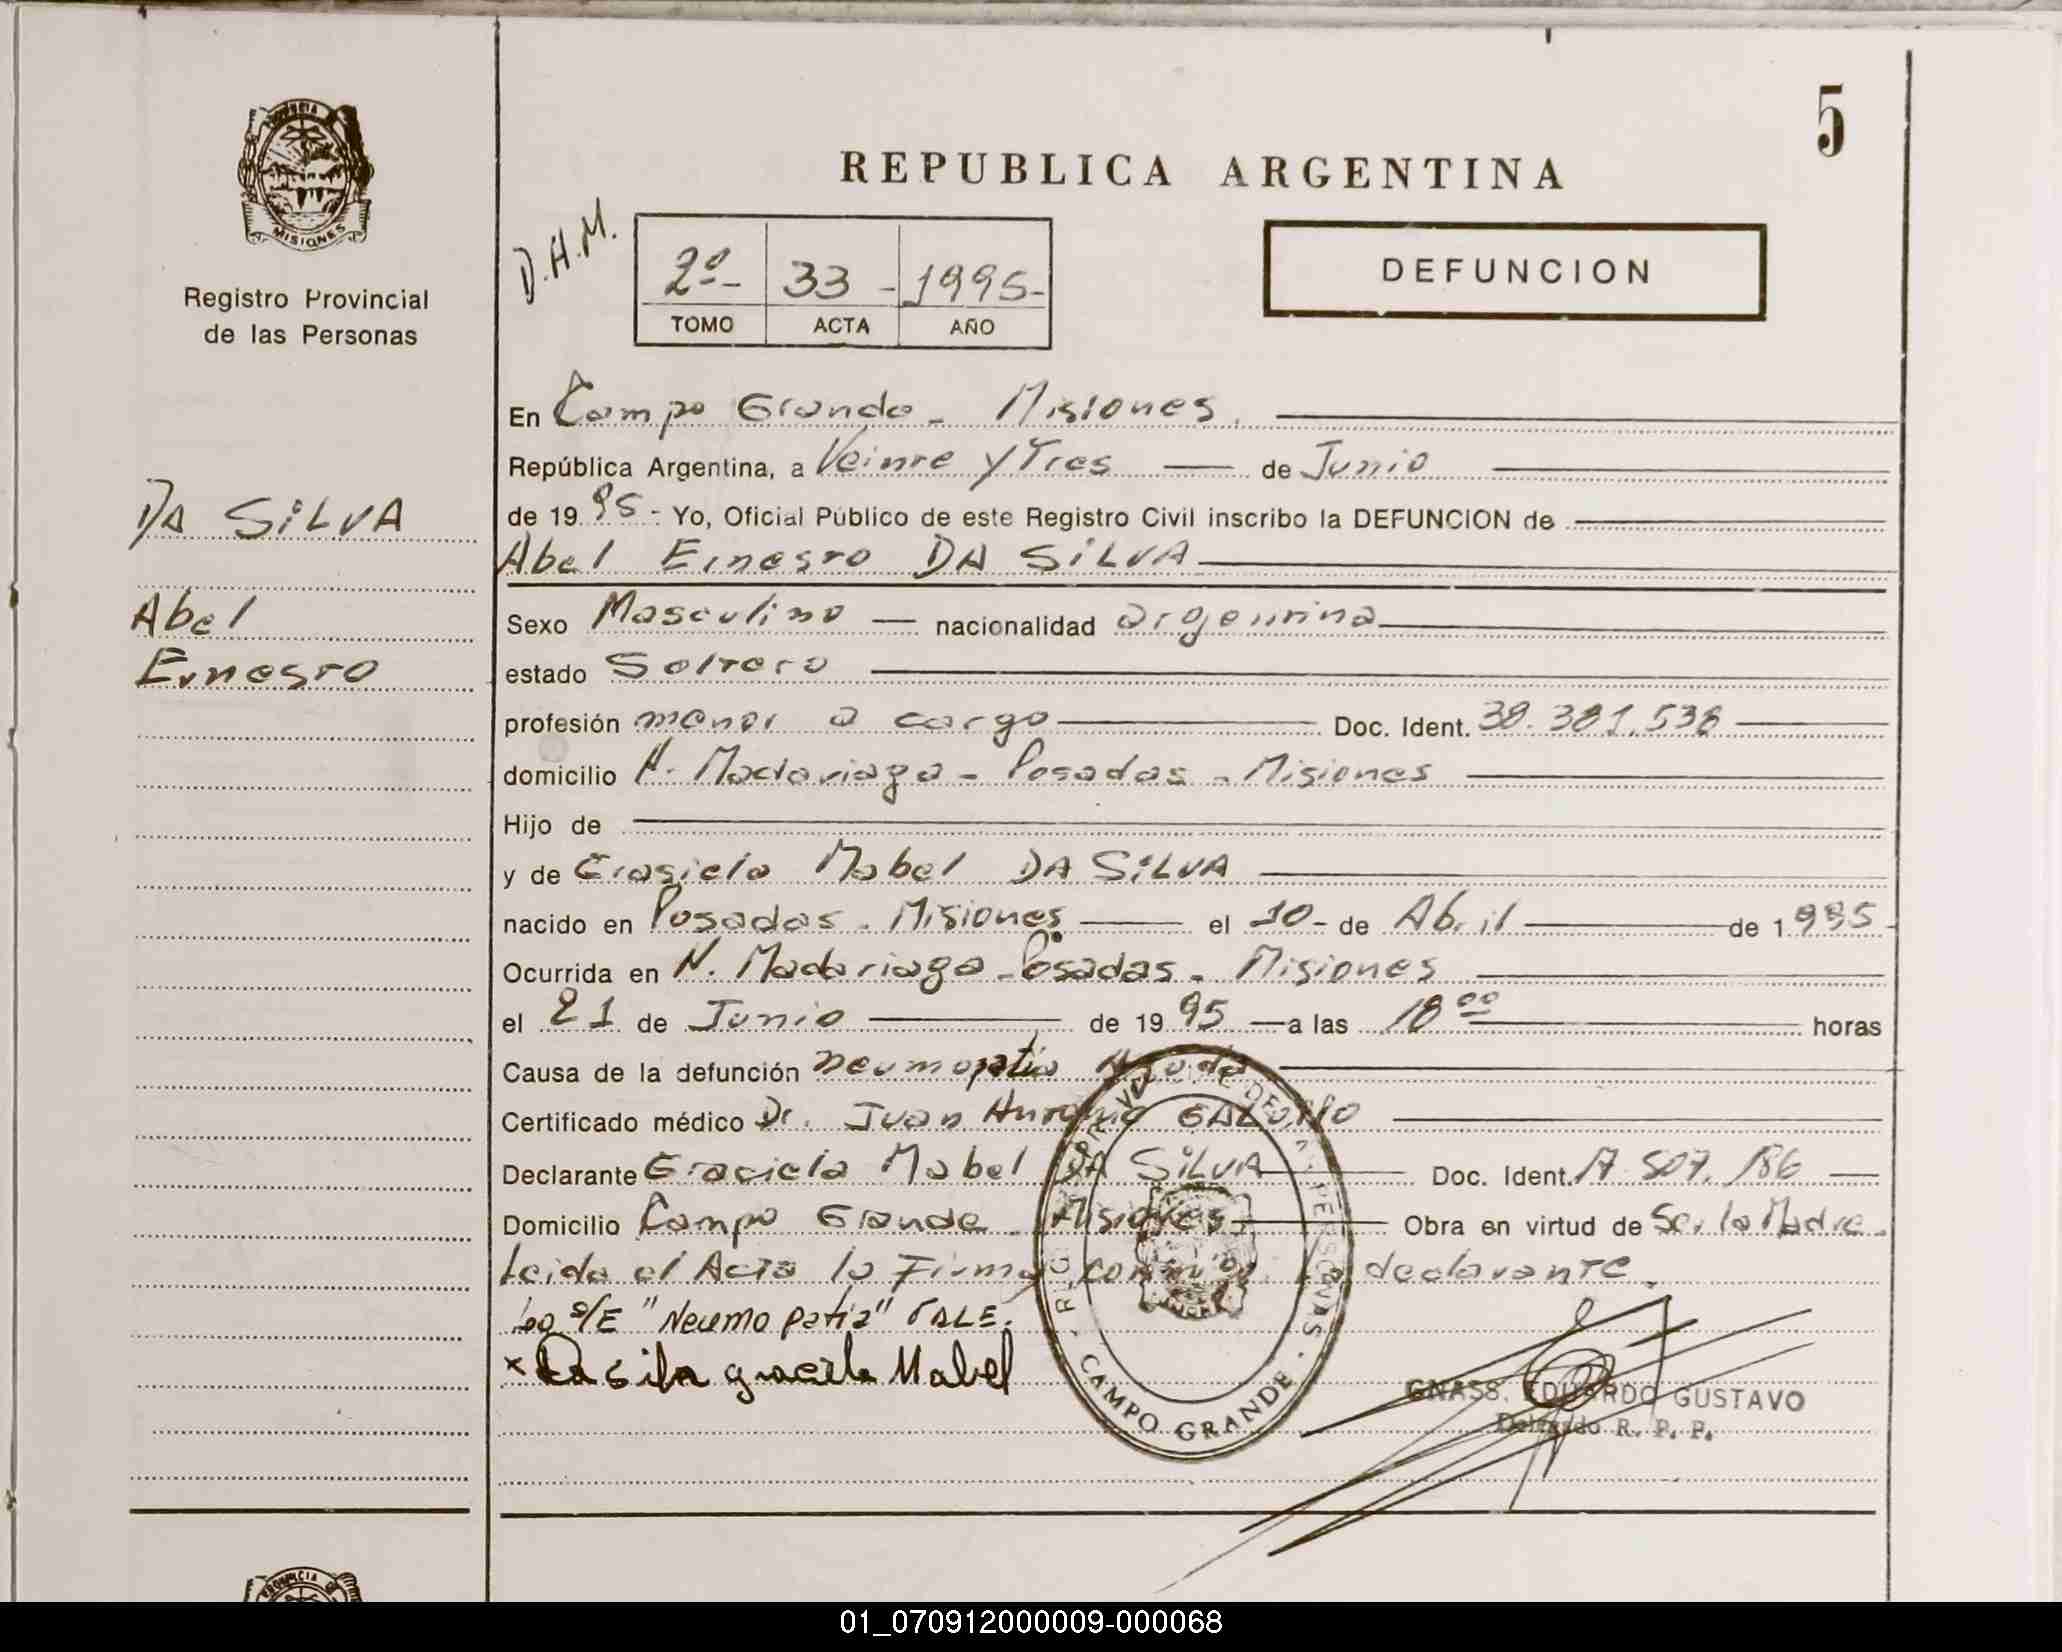 5
REPUBLICA ARGENTINA
PROVINCIA DE
MISIONES
Registro Provincial
de las Personas
D.H.M.
2º- 33 - 1995-
TOMO ACTA AÑO
DEFUNCION
DA SILVA
Abel
Ernesto
En Campo Grande - Misiones.
República Argentina, a Veinte y Tres de Junio
de 1995 - Yo, Oficial Público de este Registro Civil inscribo la DEFUNCION de
Abel Ernesto DA SILVA
Sexo Masculino nacionalidad argentina
estado Soltero
profesión menor a cargo Doc. Ident. 38.381.538
domicilio N. Madariaga - Posadas - Misiones
Hijo de
y de Graciela Mabel DA SILVA
nacido en Posadas - Misiones el 10- de Abril de 1995-
Ocurrida en N. Madariaga - Posadas - Misiones
el 21 de Junio de 1995 a las 18 00 horas
Causa de la defunción neumopatia Aguda
Certificado médico Dr. Juan Antonio
Declarante Graciela Mabel DA SILVA Doc. Ident. 17.507.186
Domicilio Campo Grande - Misiones Obra en virtud de Ser la Madre -
Leida el Acta la Firma conmigo la declarante.
s/E "Neumopatia" VALE.
x Da silva graciela Mabel
CAMPO GRANDE
GNASS, EDUARDO GUSTAVO
Delegado R. P. P.
01_070912000009-000068